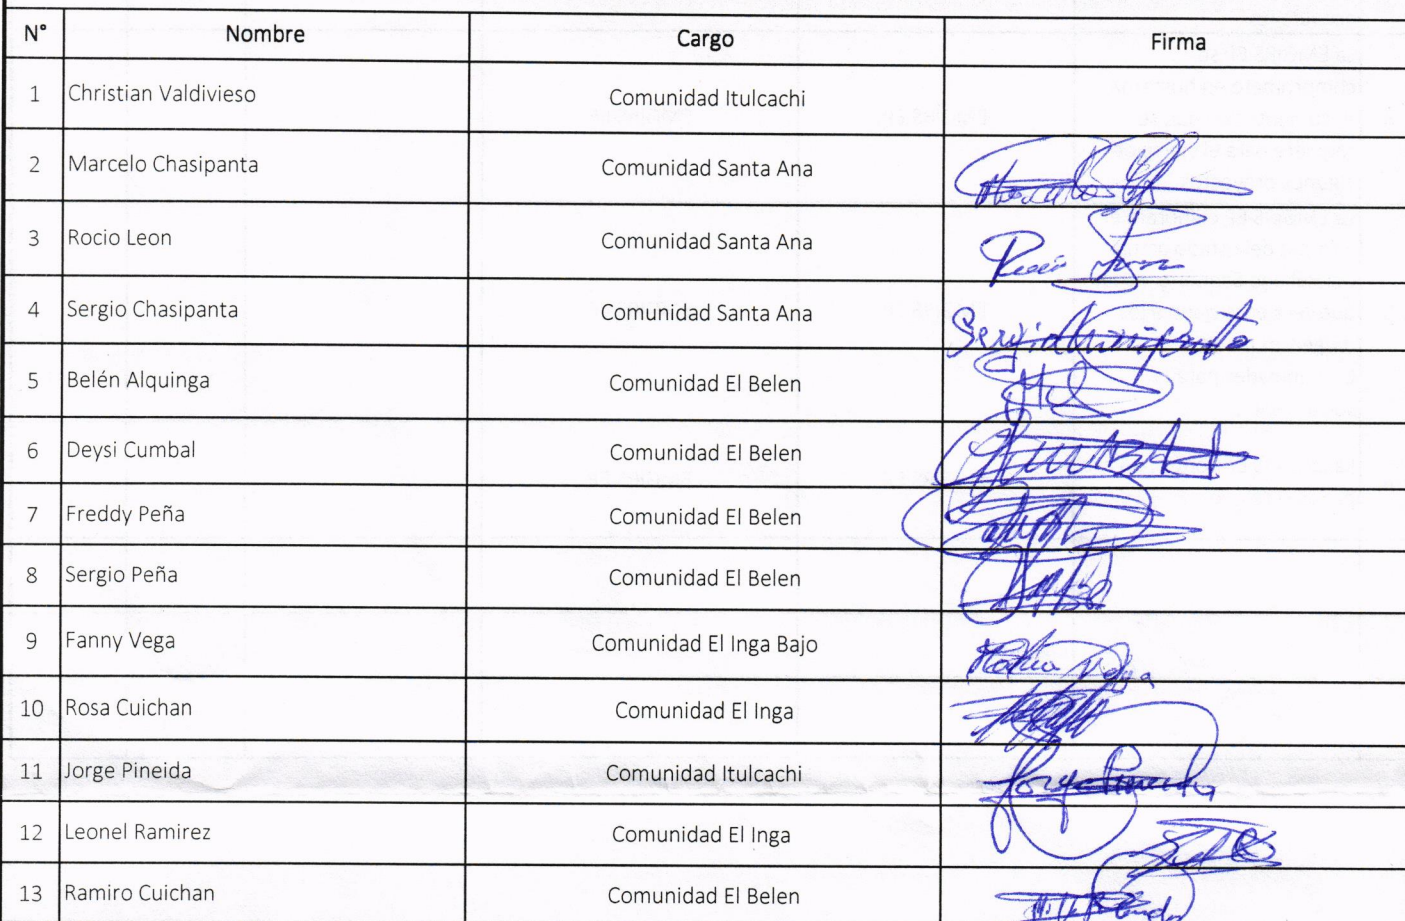 N° Nombre Cargo Firma
1 Christian Valdivieso Comunidad Itulcachi
2 Marcelo Chasipanta Comunidad Santa Ana
3 Rocio Leon Comunidad Santa Ana
4 Sergio Chasipanta Comunidad Santa Ana
5 Belén Alquinga Comunidad El Belen
6 Deysi Cumbal Comunidad El Belen
7 Freddy Peña Comunidad El Belen
8 Sergio Peña Comunidad El Belen
9 Fanny Vega Comunidad El Inga Bajo
10 Rosa Cuichan Comunidad El Inga
11 Jorge Pineida Comunidad Itulcachi Jorge Pineida
12 Leonel Ramirez Comunidad El Inga
13 Ramiro Cuichan Comunidad El Belen